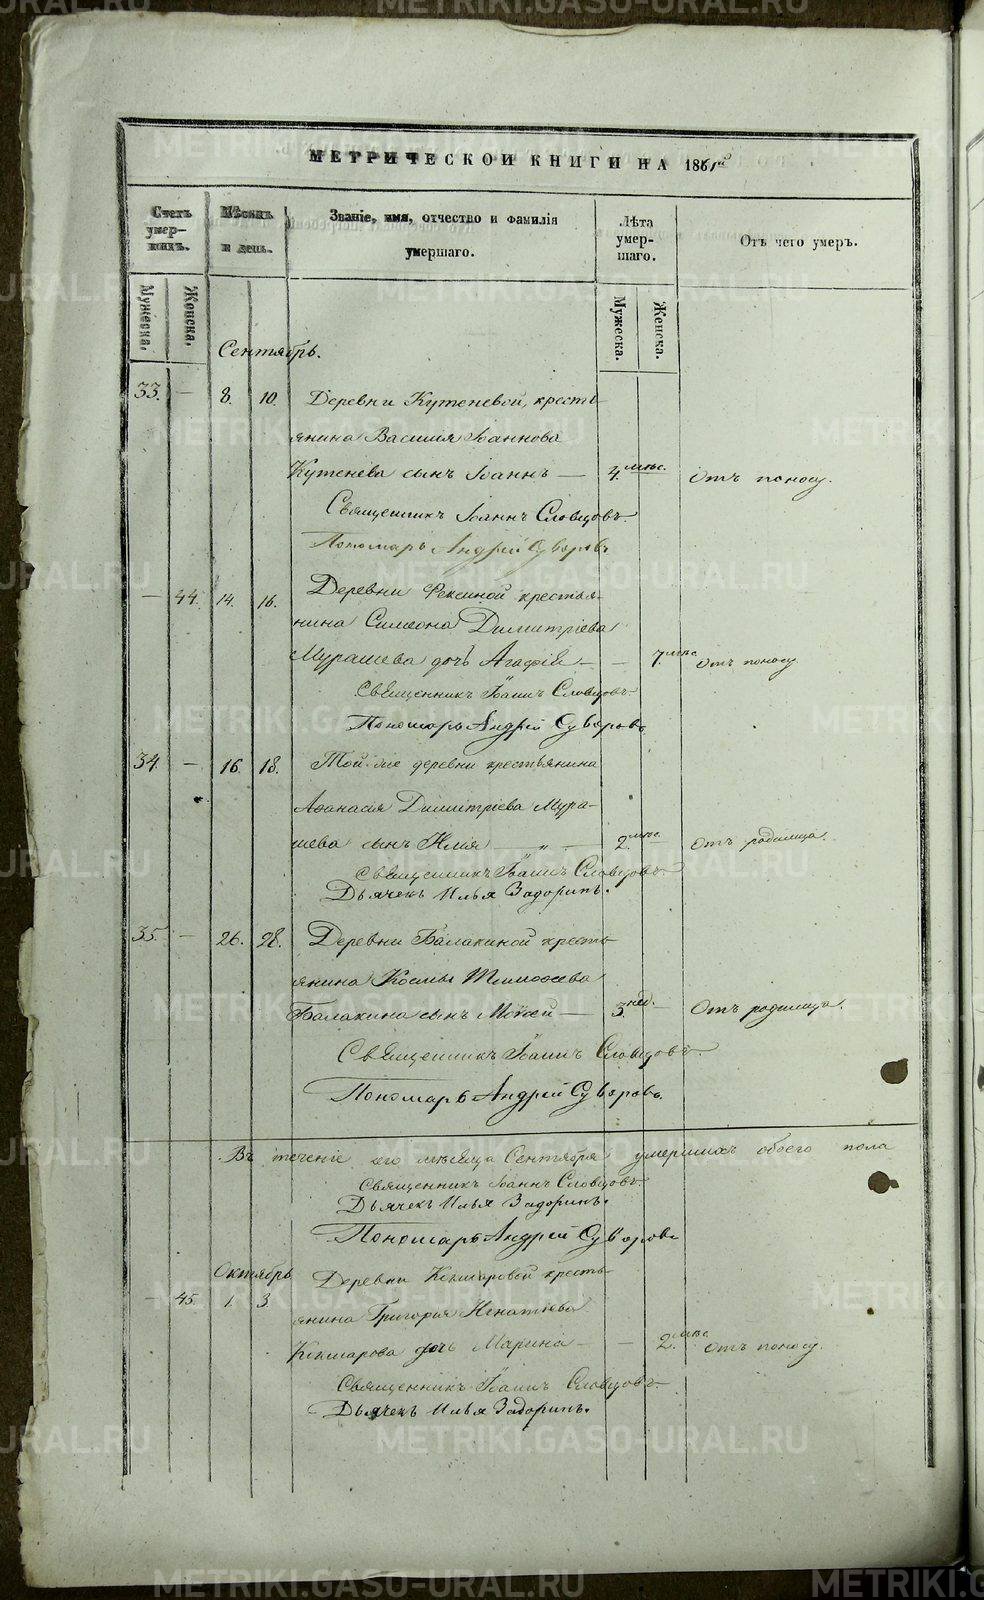 МЕТРИЧЕСКОЙ КНИГИ НА 1861й
Счетъ умер-шихъ.
Мѣсяцъ и день.
Званіе, имя, отчество и фамилія умершаго.
Лѣта умер-шаго.
Отъ чего умеръ.
Мужеска.
Женска.
Мужеска.
Женска.
Сентябрь.
33. — 8. 10. Деревни Кутеневой, кресть-
янина Василія Іоаннова
Кутенева сынъ Іоаннъ — 4. мѣс. Отъ поносу.
Священникъ Іоаннъ Словцовъ.
Пономарь Андрей Суворовъ
— 44. 14. 16. Деревни Фексиной крестья-
нина Симеона Димитріева
Мурашева дочь Агафія — — 7. мѣс. Отъ поносу
Священникъ Іоаннъ Словцовъ
Пономарь Андрей Суворовъ
34. — 16. 18. Той-же деревни крестьянина
Аѳанасія Димитріева Мура-
шева сынъ Илія — „ — 2. мѣс. Отъ родимца.
Священникъ Іоаннъ Словцовъ
Дьячекъ Илья Задоринъ.
35. — 26. 28. Деревни Балакиной кресть-
янина Космы Тимоѳеева
Балакина сынъ Моѵсей — 3. нед. Отъ родимца.
Священникъ Іоаннъ Словцовъ
Пономарь Андрей Суворовъ.
Въ теченіе его мѣсяца Сентября умершихъ обоего пола
Священникъ Іоаннъ Словцовъ
Дьячекъ Илья Задоринъ.
Пономарь Андрей Суворовъ
Октябрь
— 45. 1. 3. Деревни Кокшаровой кресть-
янина Григорія Игнатіева
Кокшарова дочь Марина — — 2. мѣс. Отъ поносу.
Священникъ Іоаннъ Словцовъ
Дьячекъ Илья Задоринъ.
METRIKI.GASO-URAL.RU